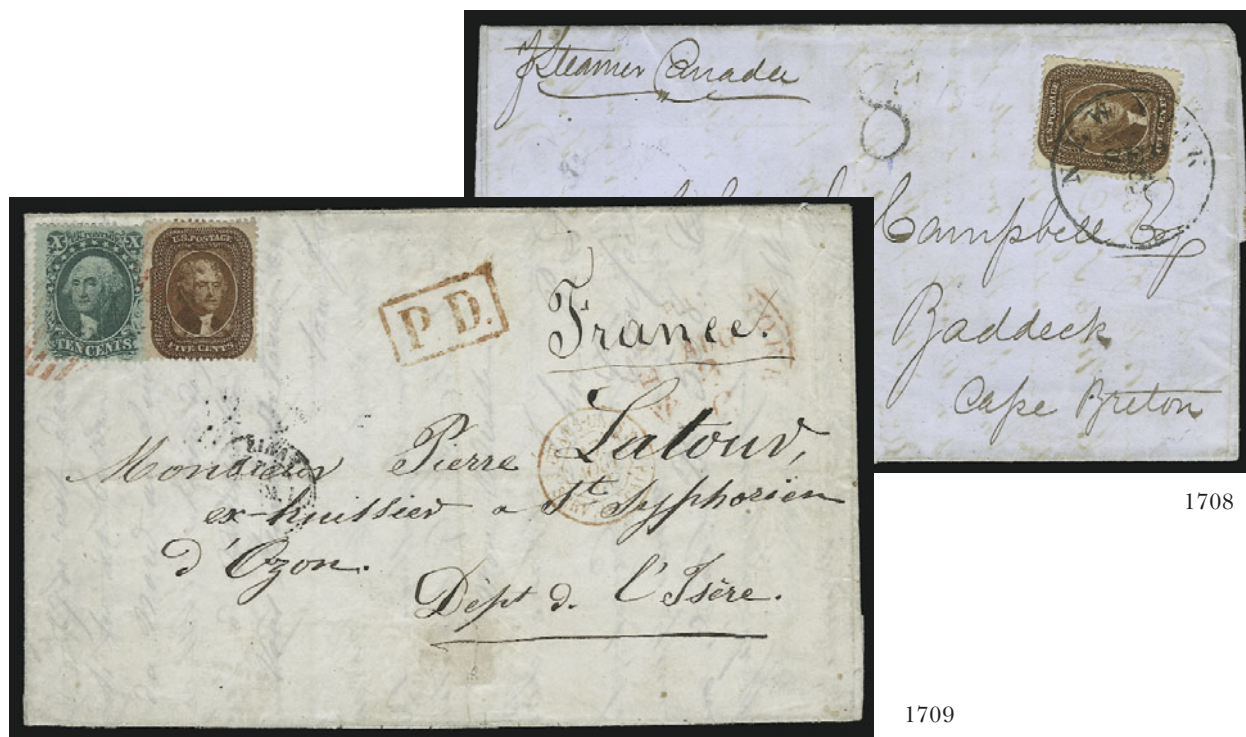 Steamer Canada
U.S. POSTAGE
NEW YORK
8
Campbell Esq
Baddeck
Cape Breton
1708
X X
U.S. POSTAGE
TEN CENTS
FIVE CENTS
P. D.
France.
Monsieur Pierre Latour,
ex-huissier a St Syphorien
d'Ozon.
Dépt d. l'Isère.
1709